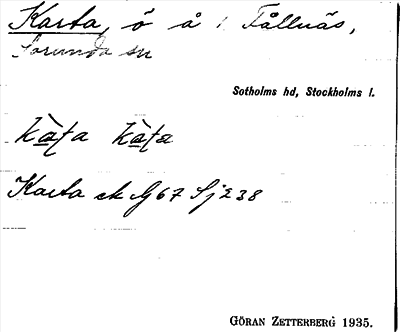 Karta, ö å i Fållnäs,
Sorunda sn
Sotholms hd, Stockholms l.
Karta ek G 67 Sj 238
GÖRAN ZETTERBERG 1935.